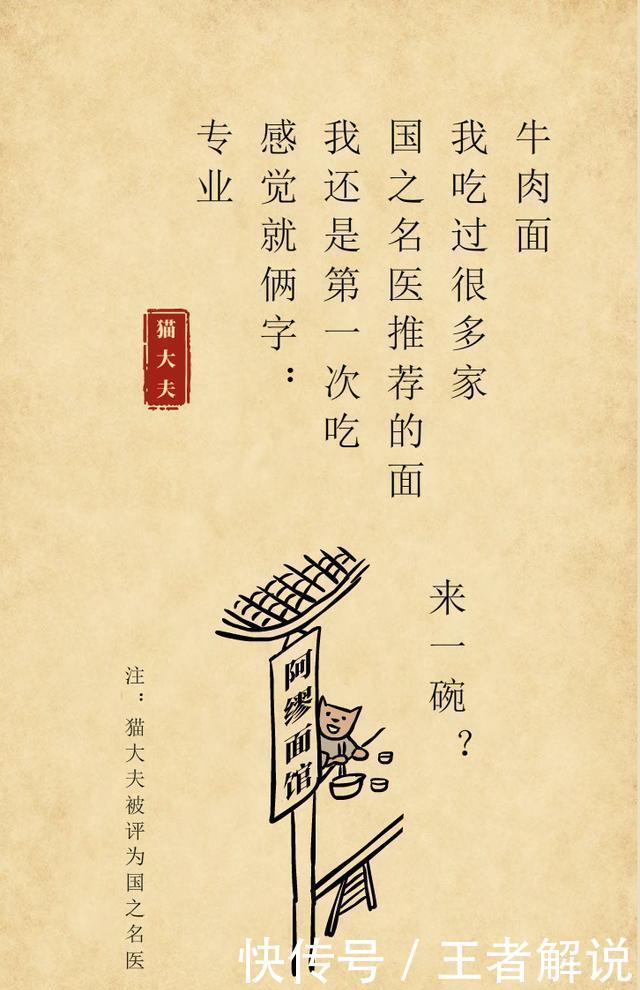 牛肉面
我吃过很多家
国之名医推荐的面
我还是第一次吃
感觉就俩字：
专业
猫大夫
来一碗？
阿缪面馆
注：猫大夫被评为国之名医
快传号 / 王者解说